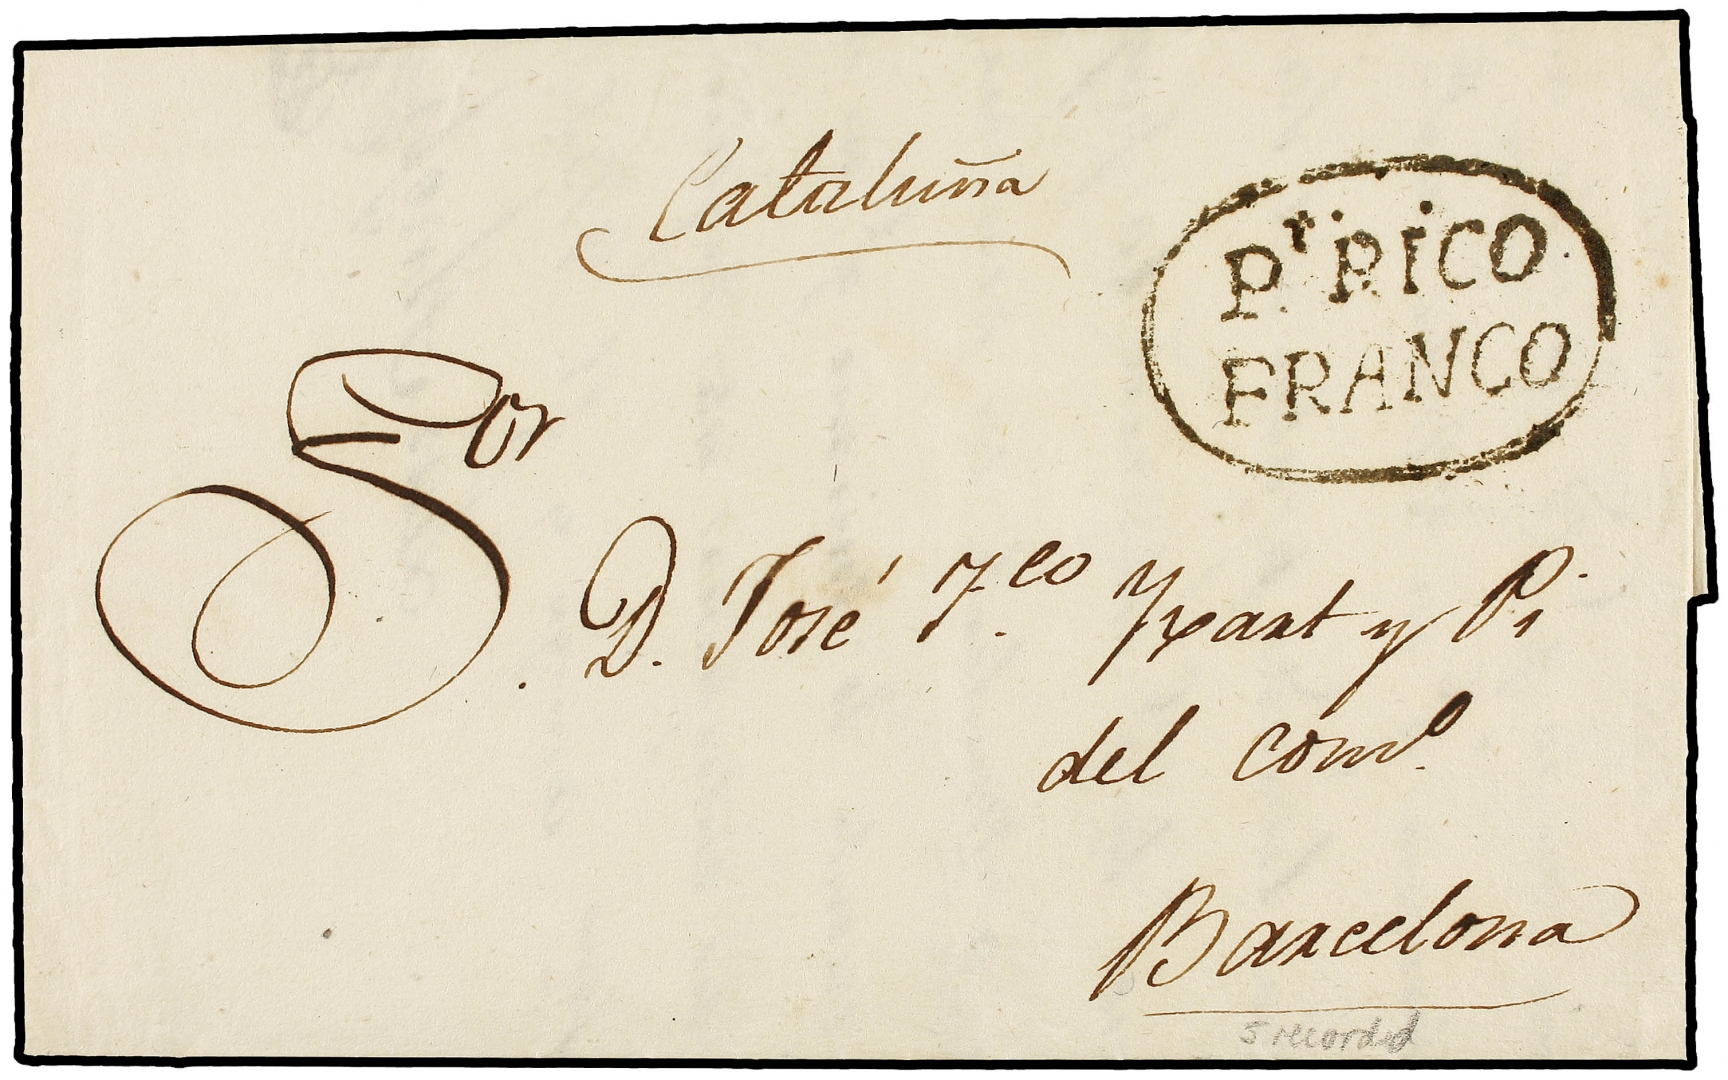 Cataluña
Pr. RICO
FRANCO
Sor.
D. José Fco. Yxart y Pi
del como.
Barcelona
5 recorded